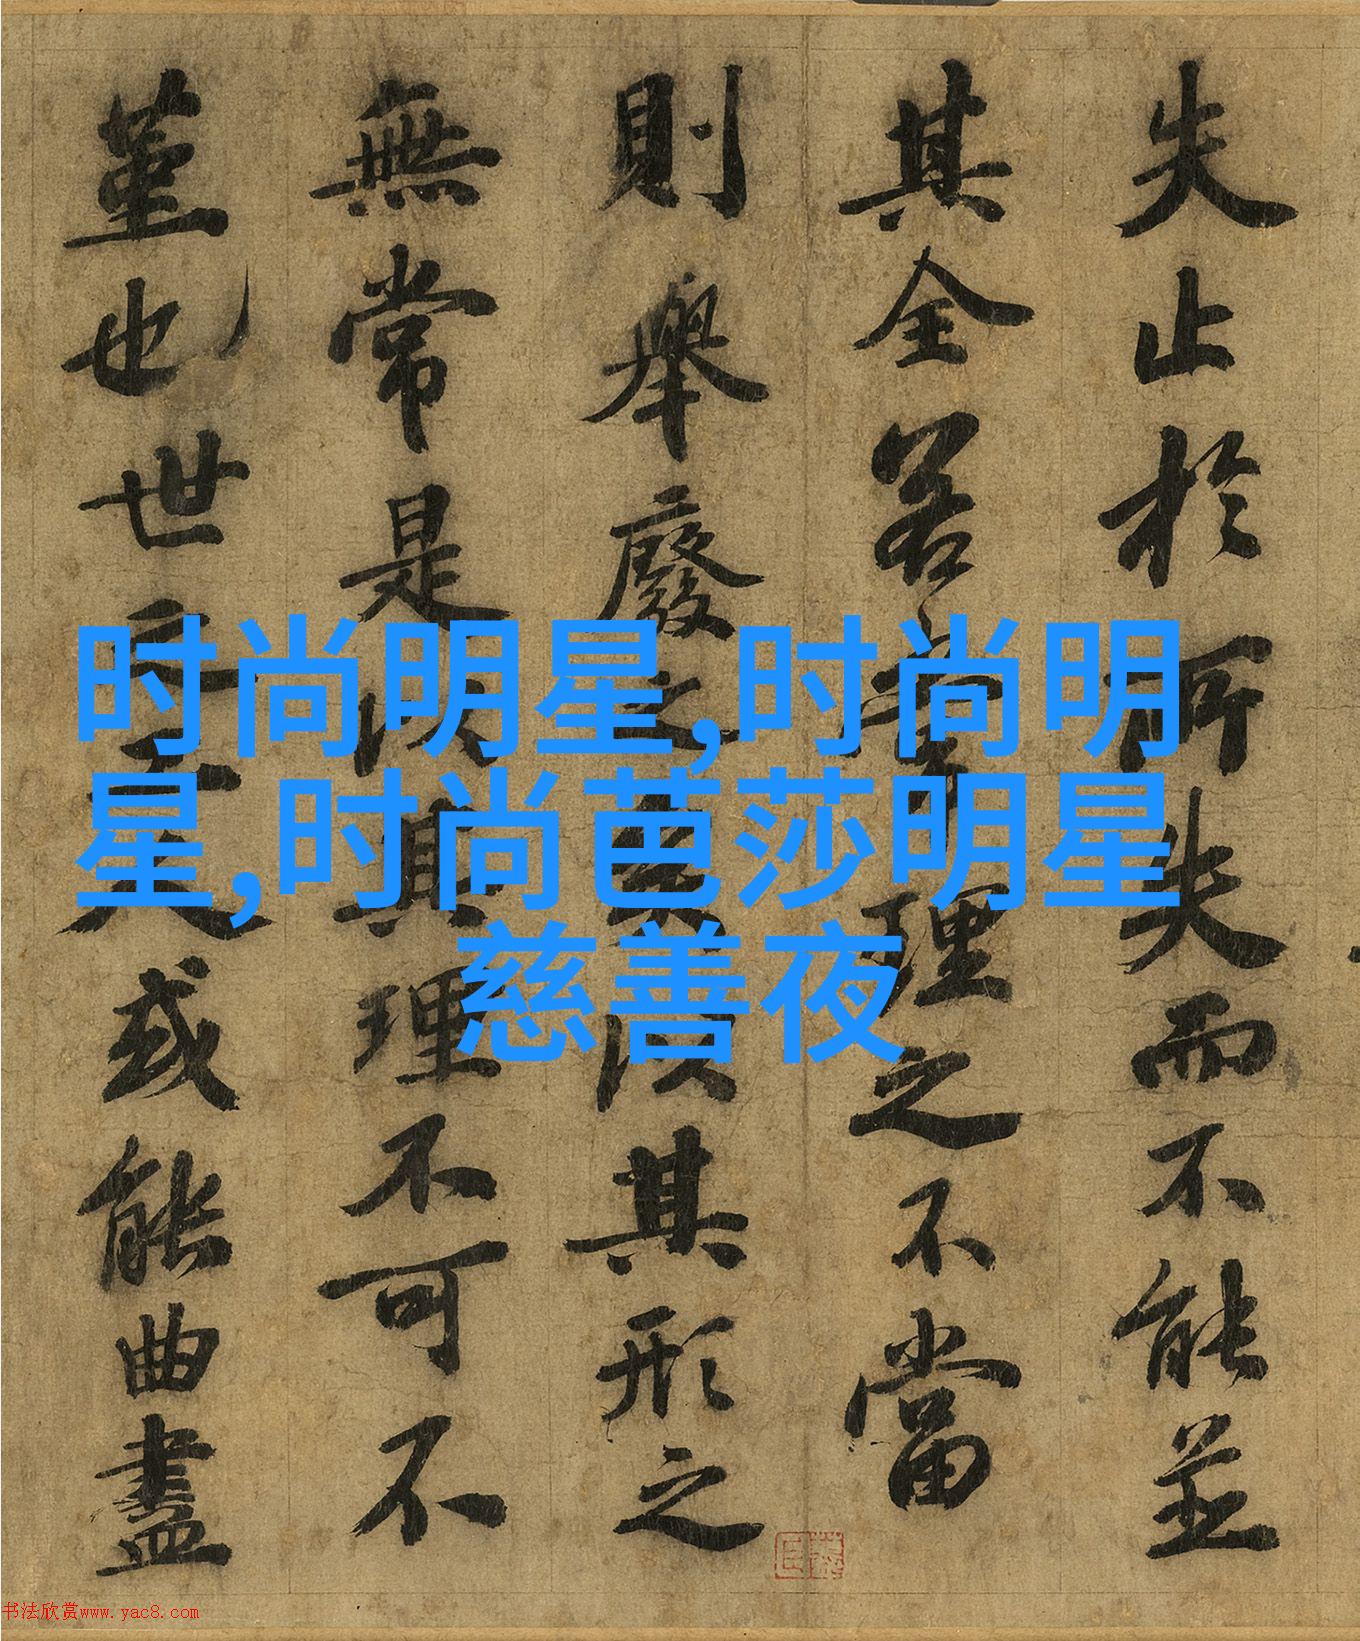 失止於所失而不能並
其全若理之不當
則舉廢之以其形之
無常是以其理不可不
堇也世之工人或能曲盡
时尚明星,时尚明
星,时尚芭莎明星
慈善夜
书法欣赏www.yac8.com